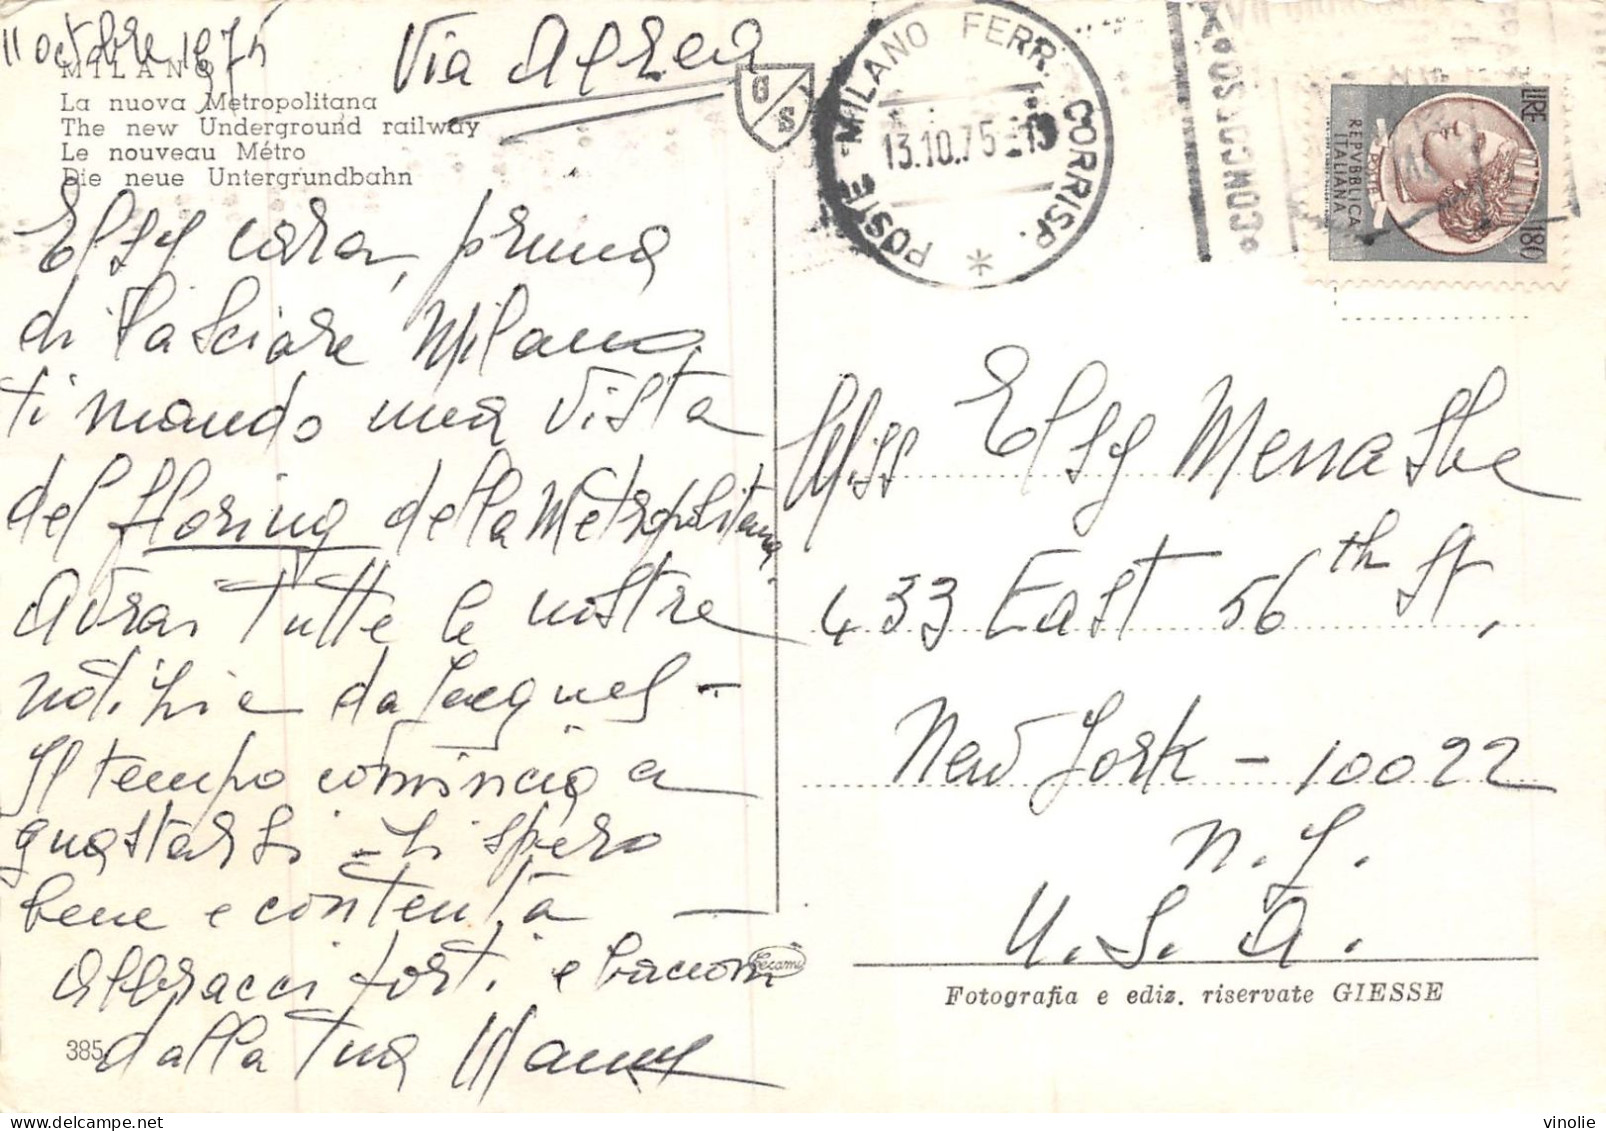 11 octobre 1975
Via Aerea
MILANO
La nuova Metropolitana
The new Underground railway
Le nouveau Métro
Die neue Untergrundbahn
GS
POSTE - MILANO FERR. CORRISP. *
13.10.75-19
CONCORSO
LIRE 180
REPVBBLICA ITALIANA
Elsy cara, prima
di lasciare Milano
ti mando una vista
del floring della Metropolitana
avrai tutte le nostre
notizie da Jacques -
Il tempo comincia a
guastarsi - ti spero
bene e contenta —
Abbracci forti e bacioni
dalla tua Mamy
385
Miss Elsy Menashe
433 East 56th St,
New York - 10022
N. Y.
U. S. A.
Fotografia e ediz. riservate GIESSE
vinolie @ delcampe.net